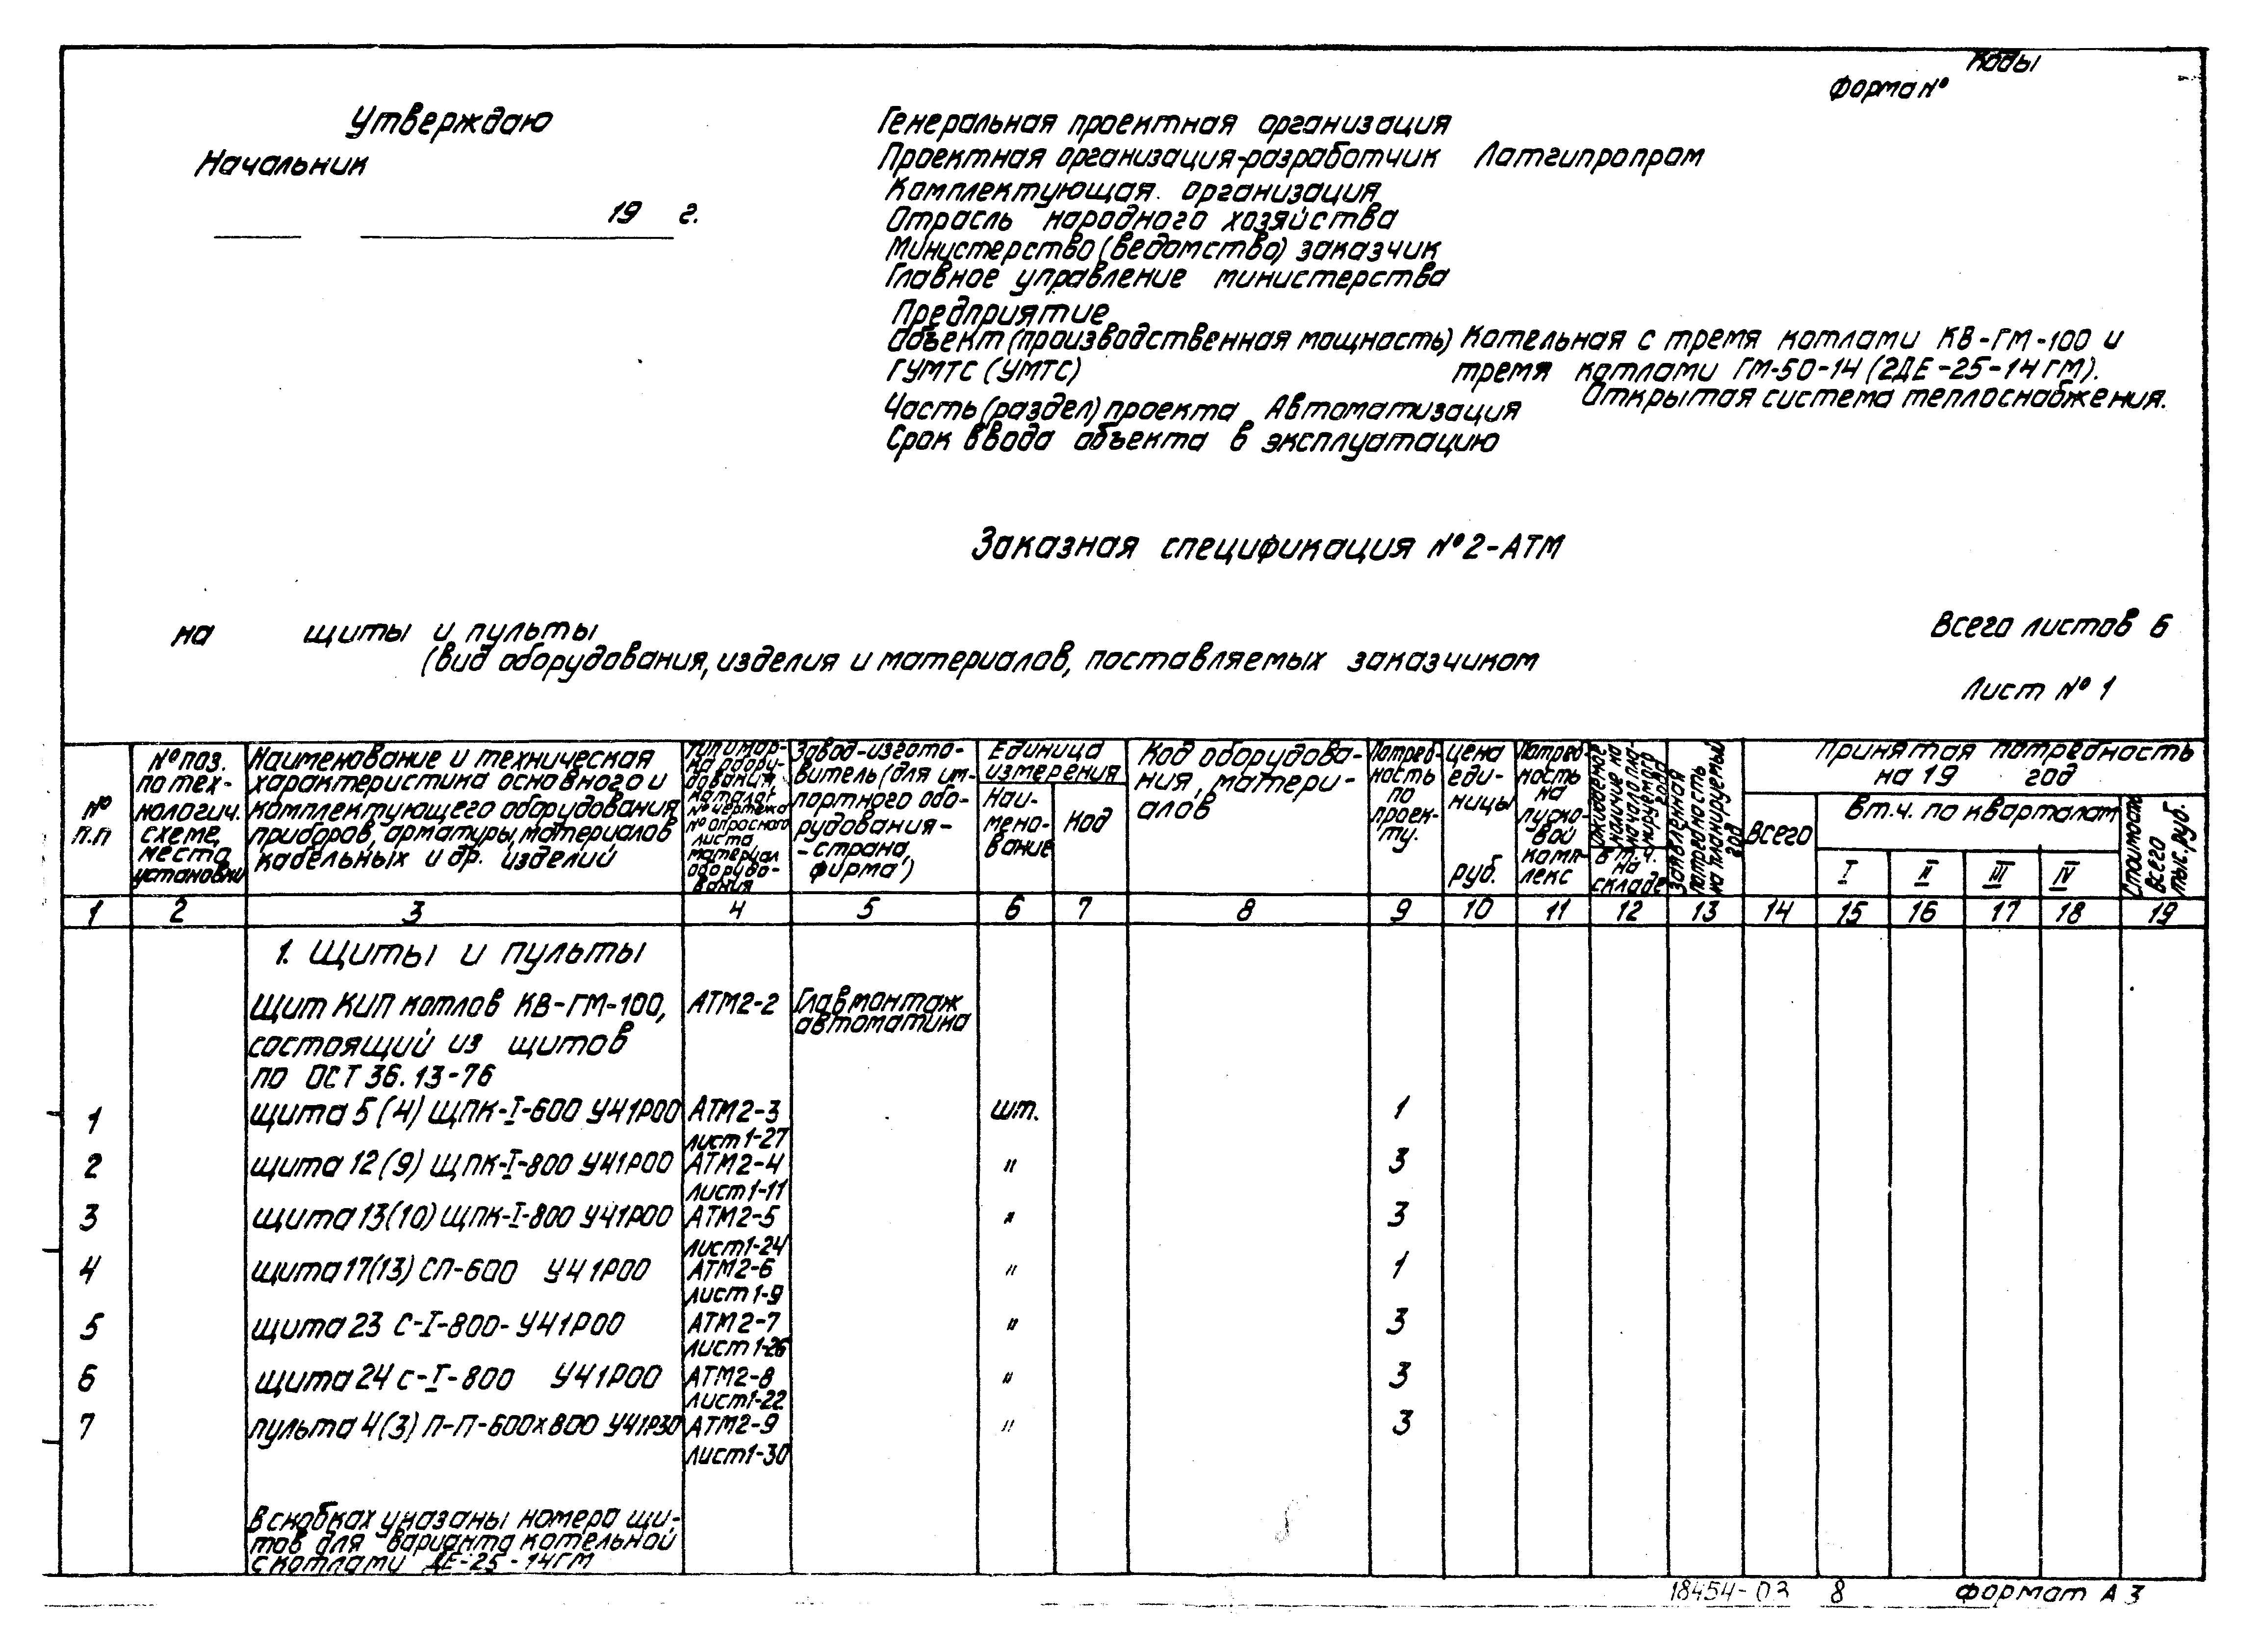 Коды
Форма №
Утверждаю
Начальник
19 г.
Генеральная проектная организация
Проектная организация-разработчик Латгипропром
Комплектующая организация
Отрасль народного хозяйства
Министерство (ведомство) заказчик
Главное управление министерства
Предприятие
Объект (производственная мощность) Котельная с тремя котлами КВ-ГМ-100 и
ГУМТС (УМТС) тремя котлами ГМ-50-14 (2ДЕ-25-14ГМ).
Открытая система теплоснабжения.
Часть (раздел) проекта Автоматизация
Срок ввода объекта в эксплуатацию
Заказная спецификация №2-АТМ
на щиты и пульты
(вид оборудования, изделия и материалов, поставляемых заказчиком
Всего листов 6
Лист № 1
№
п.п
№ поз.
по тех-
нологич.
схеме,
места
установки
Наименование и техническая
характеристика основного и
комплектующего оборудования,
приборов, арматуры, материалов
кабельных и др. изделий
Тип и мар-
ка обору-
дования,
каталог
№ чертежа
№ опросного
листа
материал
оборудо-
вания
Завод-изгото-
витель (для им-
портного обо-
рудования-
-страна,
фирма)
Единица
измерения
Наи-
мено-
вание
Код
Код оборудова-
ния, матери-
алов
Потреб-
ность
по
проек-
ту.
Цена
еди-
ницы
руб.
Потреб
ность
на
пуско-
вой
комп-
лекс
Ожидаемое
наличие на
начало пла-
нируемого
года
в т.ч.
на
складе
Заявленная
потребность
на планируемый
год
Принятая потребность
на 19 год
Всего
В т.ч. по кварталам
I II III IV
Стоимость
всего
тыс. руб.
1 2 3 4 5 6 7 8 9 10 11 12 13 14 15 16 17 18 19
1. Щиты и пульты
Щит КИП котлов КВ-ГМ-100, АТМ2-2 Главмонтаж
автоматика
состоящий из щитов
по ОСТ 36.13-76
1 щита 5 (4) ЩПК-I-600 У41Р00 АТМ2-3 шт. 1
лист 1-27
2 щита 12 (9) ЩПК-I-800 У41Р00 АТМ2-4 " 3
лист 1-11
3 щита 13(10) ЩПК-I-800 У41Р00 АТМ2-5 " 3
лист 1-24
4 щита 17(13) СП-600 У41Р00 АТМ2-6 " 1
лист 1-9
5 щита 23 С-I-800- У41Р00 АТМ2-7 " 3
лист 1-26
6 щита 24 С-I-800 У41Р00 АТМ2-8 " 3
лист 1-22
7 пульта 4(3) П-П-600х800 У41Р30 АТМ2-9 " 3
лист 1-30
В скобках указаны номера щи-
тов для варианта котельной
с котлами ДЕ-25-14ГМ
18454-03 8 Формат А3